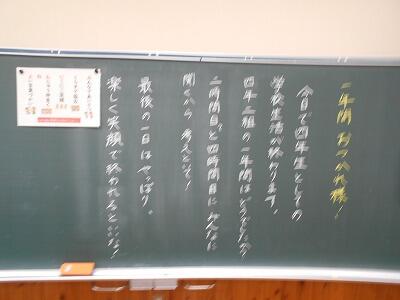 一年間 おつかれ様!
今日で四年生としての
学校生活が終わります。
四年二組の一年間はどうでしたか?
二時間目と四時間目にみんなに
聞くから 考えといて!
最後の一日はやっぱり。
楽しく笑顔で終われるといいな!